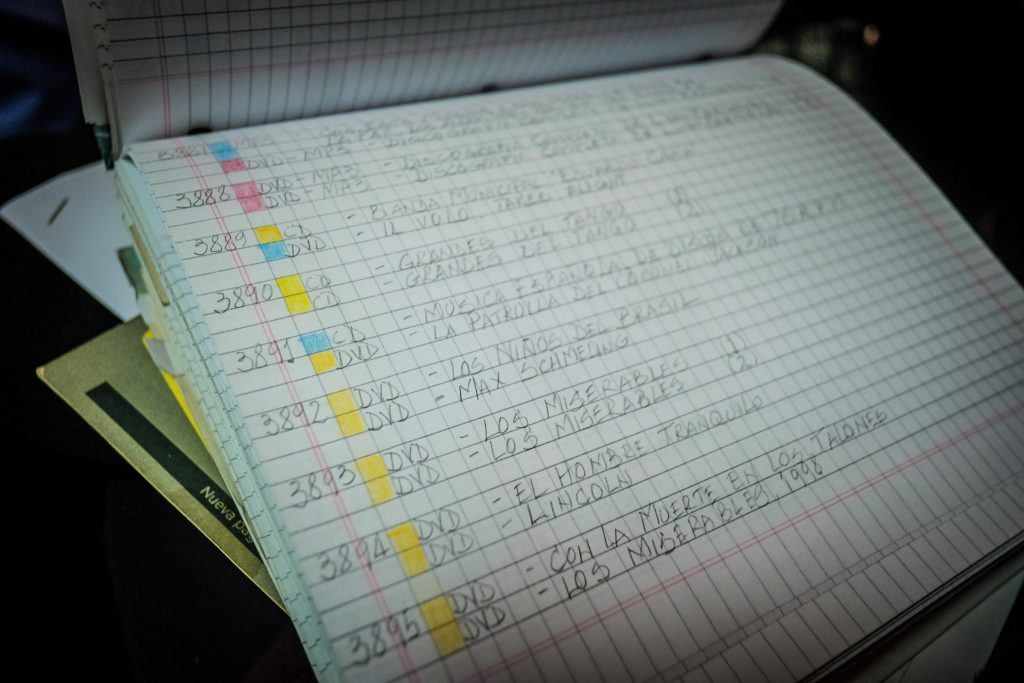 3887 MP3 -
DVD-MP3 - DISCOGRAFIA
3888 DVD-MP3 - DISCOGRAFIA
DVD-MP3
3889 CD - BANDA
DVD - IL VOLO
3890 CD - GRANDES DEL TANGO (1)
CD - GRANDES DEL TANGO (2)
3891 CD - MUSICA ESPAÑOLA DE
DVD - LA PATRULLA DEL CORONEL JACKSON
3892 DVD - LOS NIÑOS DEL BRASIL
DVD - MAX SCHMELING
3893 DVD - LOS MISERABLES (1)
DVD - LOS MISERABLES (2)
3894 DVD - EL HOMBRE TRANQUILO
DVD - LINCOLN
3895 DVD - CON LA MUERTE EN LOS TALONES
DVD - LOS MISERABLES, 1998
Nueva